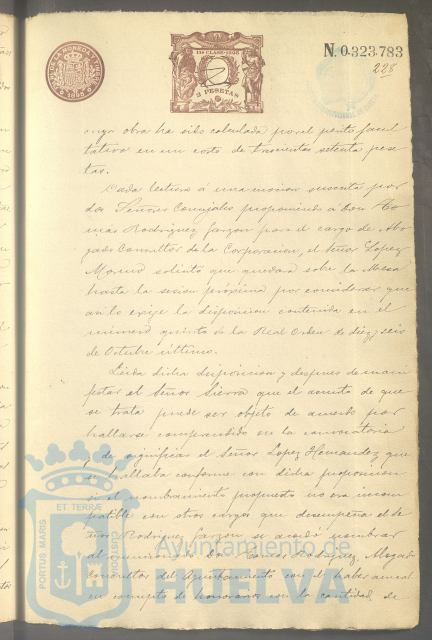 11ª CLASE
2 PESETAS
N. 0.323.783
228
cuya obra ha sido calculada por el perito facul
tativo en un costo de trescientas setenta pese
tas.
Dada lectura a una mocion suscrita por
dos Señores Concejales proponiendo a Don To
más Rodriguez Garzon para el cargo de Abo
gado Consultor de la Corporacion, el Señor Lopez
Moreno solicitó que quedara sobre la Mesa
hasta la sesion próxima por considerar que
asi lo exige la disposicion contenida en el
número quinto de la Real Orden de diez y seis
de Octubre último.
Leida dicha disposicion y despues de mani
festar el Señor Sierra que el asunto de que
se trata puede ser objeto de acuerdo por
hallarse comprendido en la convocatoria
y de significar el Señor Lopez Hernandez que
se hallaba conforme con dicha proposicion
si el nombramiento propuesto no era incom
patible con otros cargos que desempeña el Se
ñor Rodriguez Garzon se acordó nombrar
al Don Tomás Rodriguez Abogado
Consultor del Ayuntamiento con el haber anual
en concepto de honorarios con la cantidad de
PORTUS MARIS
ET TERRÆ
CUSTODIA
Ayuntamiento de
HUELVA